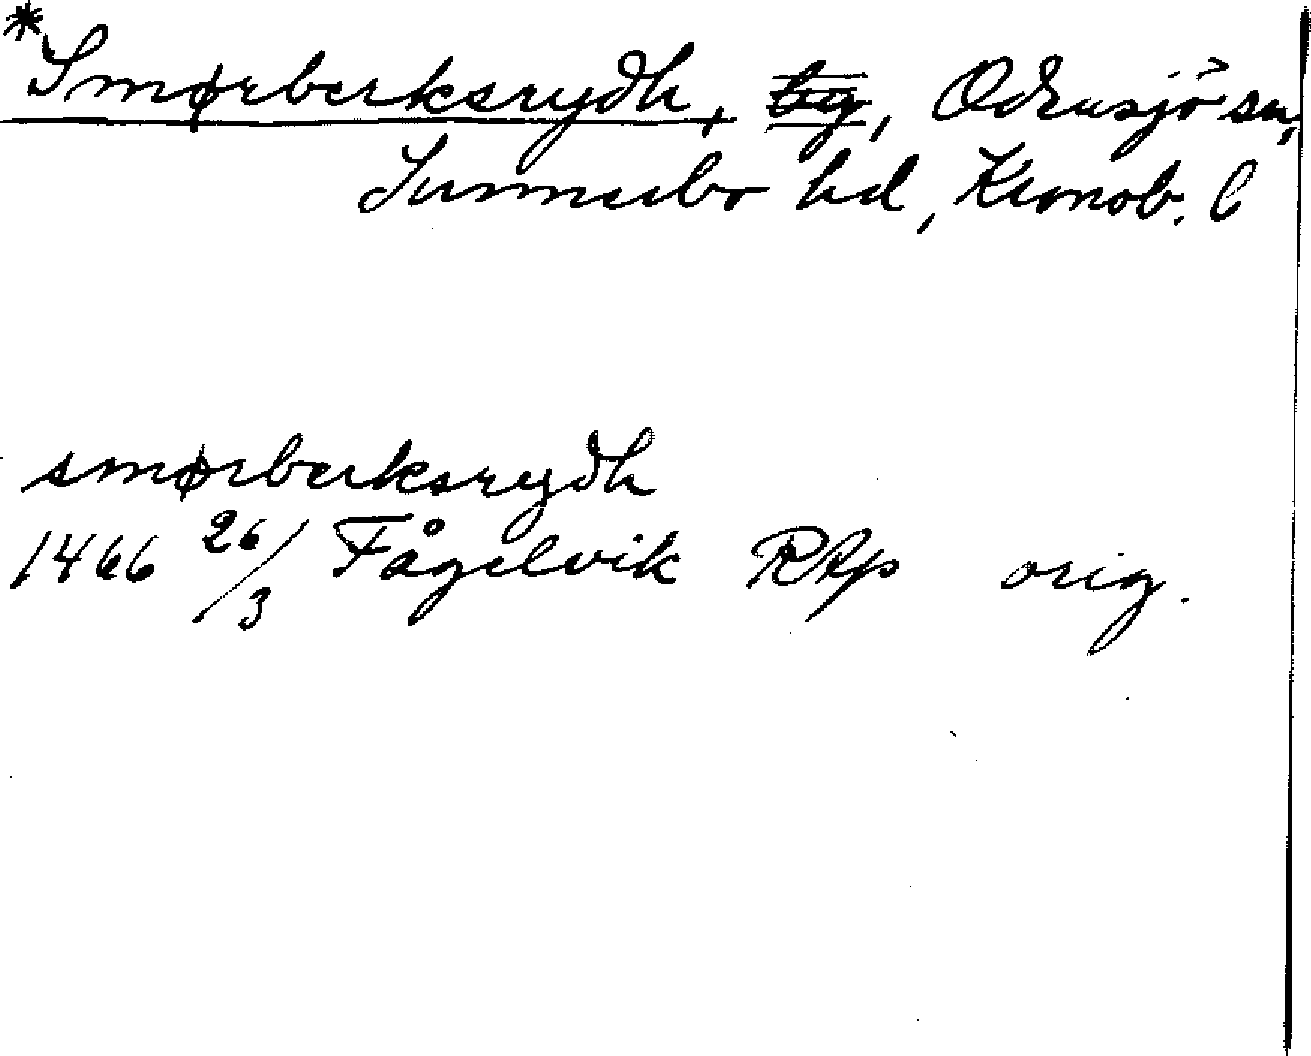 *Smørberksrydh, by, Odensjö sn,
Sunnerbo hd, Kronob. l
smørberksrydh
1466 26/3 Fågelvik RAp orig.